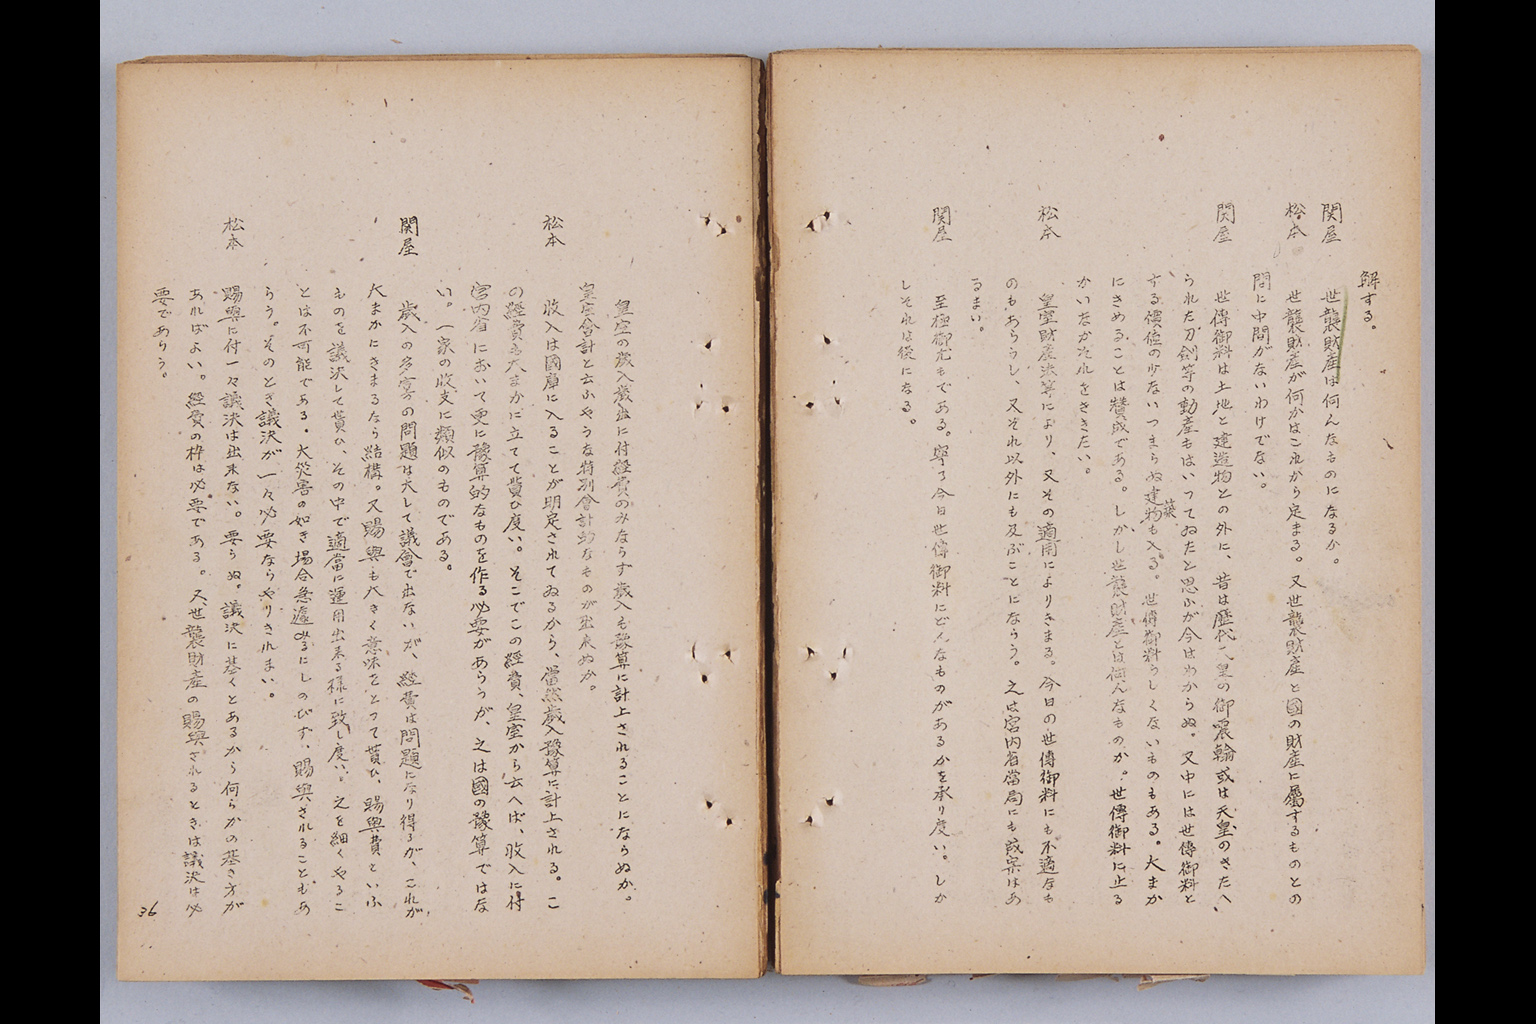 解する。
関屋 世襲財産は何んなものになるか。
松本 世襲財産が何かはこれから定まる。又世襲財産と國の財産に屬するものとの
間に中間がないわけでない。
関屋 世傳御料は土地と建造物との外に、昔は歴代天皇の御震翰或は天皇のきたへ
られた刀剣等の動産もはいつてゐたと思ふが今はわからぬ。又中には世傳御料と
する價値の少ないつまらぬ建物も入る。世傳御料らしくないものもある。大まか
にきめることは賛成である。しかし世襲財産とは何んなものか。世傳御料に止る
かいなかそれをききたい。
松本 皇室財産法等により、又その適用によりきまる。今日の世傳御料にも不適なも
のもあらうし、又それ以外にも及ぶことにならう。之は宮内省當局にも成案はあ
るまい。
関屋 至極御尤もである。寧ろ今日世傳御料にどんなものがあるかを承り度い。しか
しそれは後になる。
皇室の歳入歳出に付経費のみならず歳入も豫算に計上されることにならぬか。
皇室會計と云ふやうな特別會計的なものが出来ぬか。
松本 收入は國庫に入ることが明定されてゐるから、當然歳入豫算に計上される。こ
の経費も大まかに立てて貰ひ度い。そこでこの経費、皇室から云へば、收入に付
宮内省において更に豫算的なものを作る必要があらうが、之は國の豫算ではな
い。一家の收支に類似のものである。
関屋 歳入の多寡の問題は大して議會で出ないが、経費は問題になり得るが、これが
大まかにきまるなら結構。又賜與も大きく意味をとつて貰ひ、賜與費といふ
ものを議決して貰ひ、その中で適當に運用出来る様に致し度い。之を細くやるこ
とは不可能である。大災害の如き場合急遽みるにしのびず、賜與されることもあ
らう。そのとき議決が一々必要ならやりきれまい。
松本 賜與に付一々議決は出来ない。要らぬ。議決に基くとあるから何らかの基き方が
あればよい。経費の枠は必要である。又、世襲財産の賜與されるときは議決は必
要であらう。
36